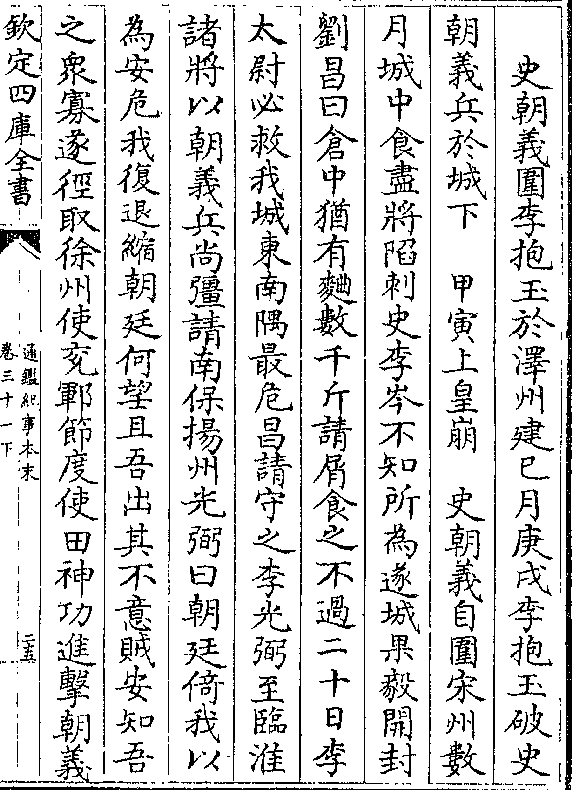 史朝義圍李抱玉於澤州建巳月庚戌李抱玉破史
朝義兵於城下　甲寅上皇崩　史朝義自圍宋州數
月城中食盡將陷刺史李岑不知所為遂城果毅開封
劉昌曰倉中猶有麯數千斤請屑食之不過二十日李
太尉必救我城東南隅最危昌請守之李光弼至臨淮
諸將以朝義兵尚彊請南保揚州光弼曰朝廷倚我以
為安危我復退縮朝廷何望且吾出其不意賊安知吾
之衆寡遂徑取徐州使兗鄆節度使田神功進擊朝義
欽定四庫全書
通鑑紀事本末
卷三十一下
二十五